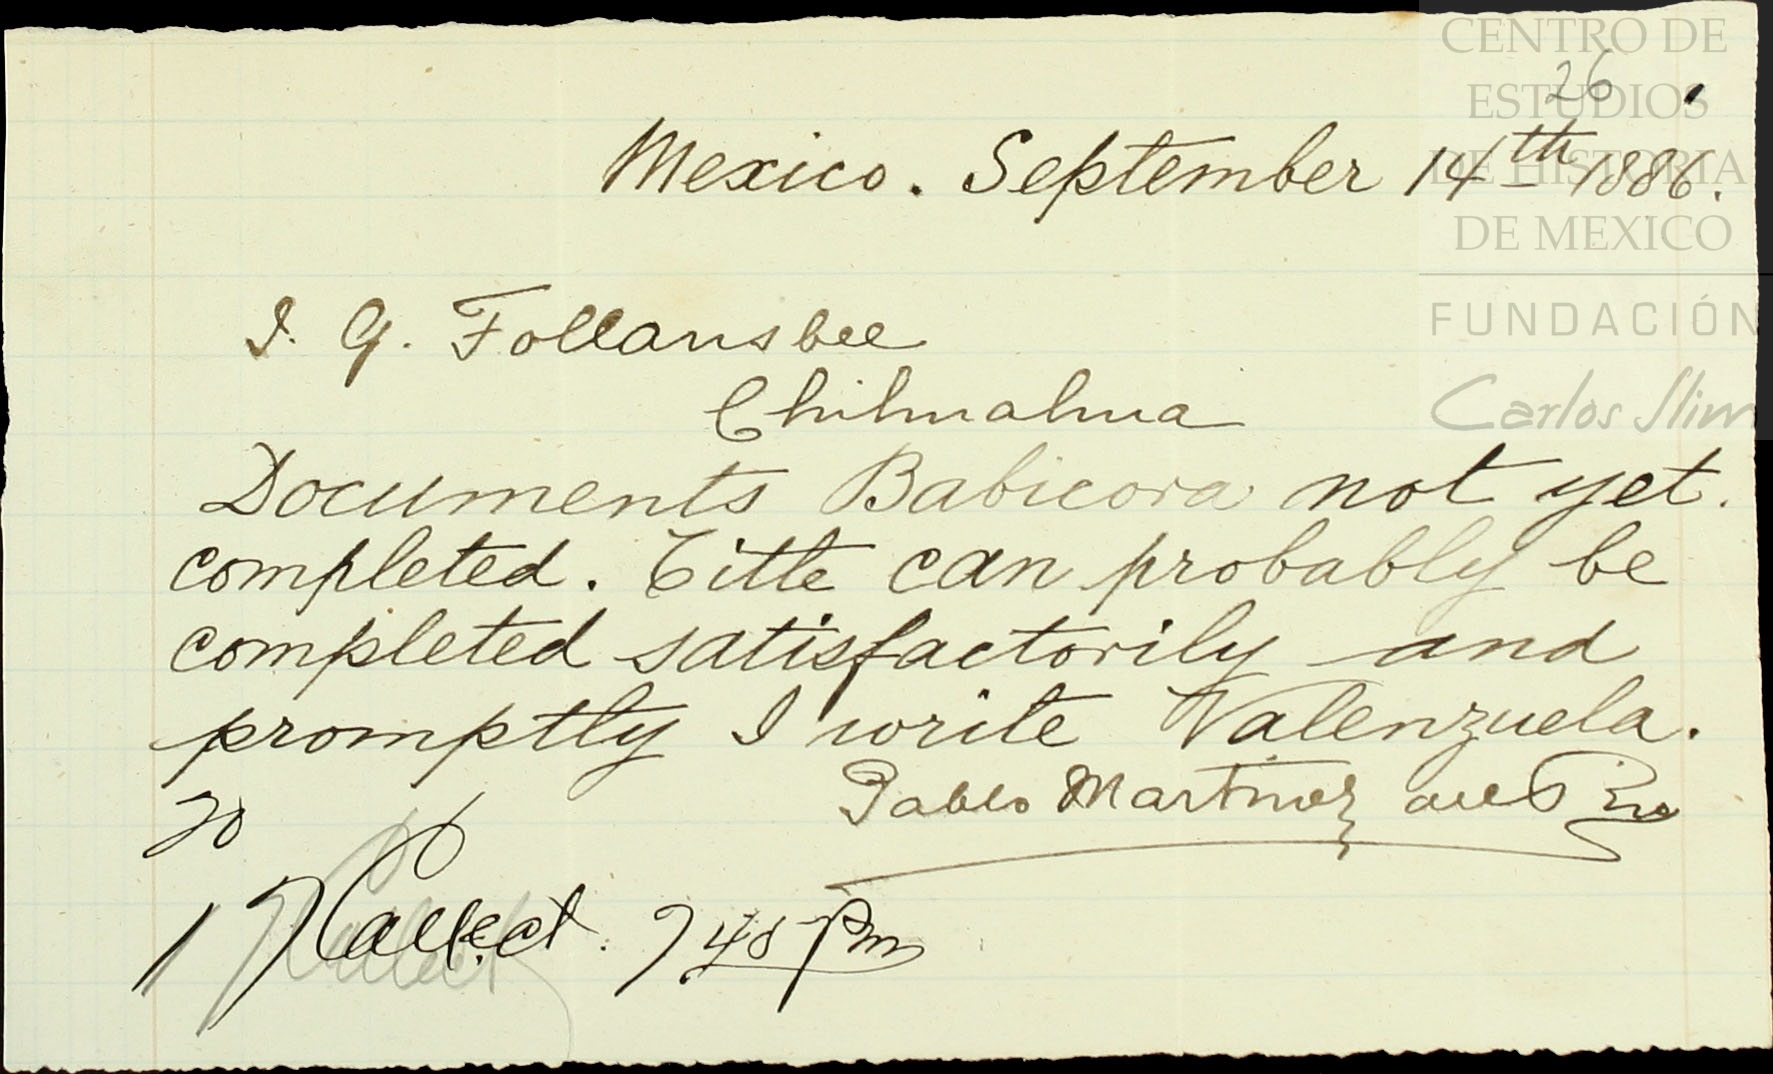 CENTRO DE
ESTUDIOS
DE HISTORIA
DE MEXICO
FUNDACIÓN
Carlos Slim
26
Mexico. September 14th 1886.
I. G. Follansbee
Chihuahua
Documents Babicora not yet.
completed. Title can probably be
completed satisfactorily and
promptly I write Valenzuela.
Pablo Martinez del Rio
20
17 Collect. 7 48 Pm